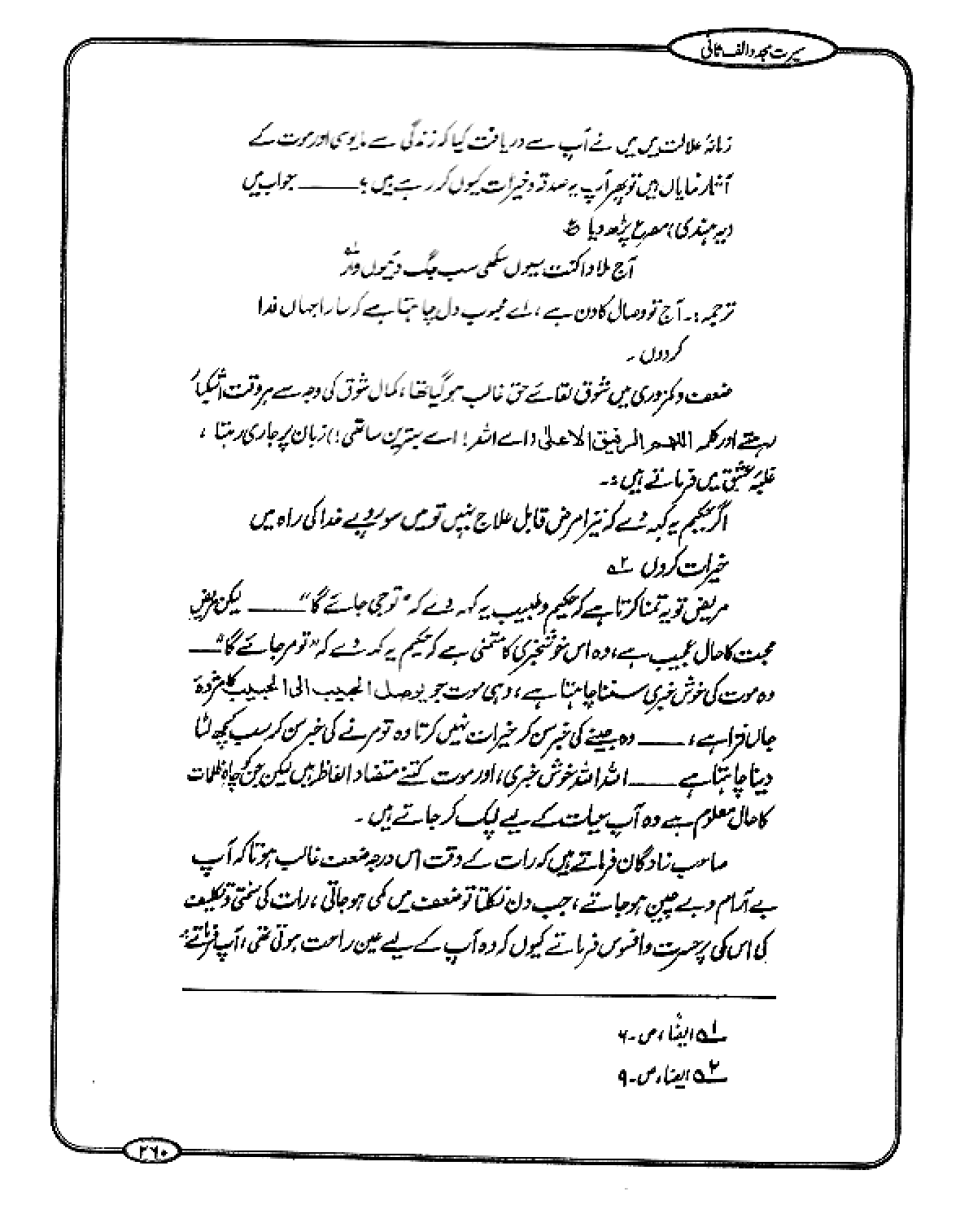 سیرت مجدد الف ثانی
زمانۂ علالت میں میں نے آپ سے دریافت کیا کہ زندگی سے مایوسی اور موت کے
آثار نمایاں ہیں تو پھر آپ یہ صدقہ و خیرات کیوں کر رہے ہیں؟ ــــــ جواب میں
(یہ ہندی) مصرع پڑھ دیا ؏
آج ملاوا کنت سیوں سکھی سب جگ دیوں وار ؎۱
ترجمہ:۔ آج تو وصال کا دن ہے، اے محبوب دل چاہتا ہے کہ سارا جہاں فدا
کر دوں ۔
ضعف و کمزوری میں شوق لقائے حق غالب ہو گیا تھا، کمال شوق کی وجہ سے ہر وقت اشکبار
رہتے اور کلمہ اللھم الرفیق الاعلیٰ (اے اللہ! اے بہترین ساتھی!) زبان پر جاری رہتا،
غلبۂ عشق میں فرماتے ہیں:۔
اگر حکیم یہ کہہ دے کہ تیرا مرض قابل علاج نہیں تو میں سو روپے خدا کی راہ میں
خیرات کروں ؎۲
مریض تو یہ تمنا کرتا ہے کہ حکیم و طبیب یہ کہہ دے کہ "تو جی جائے گا" ــــــ لیکن مریض
محبت کا حال عجیب ہے، وہ اس خوشخبری کا متمنی ہے کہ حکیم یہ کہہ دے کہ "تو مر جائے گا" ــــــ
وہ موت کی خوش خبری سننا چاہتا ہے، وہی موت جو یوصل الحبیب الی الحبیب کا مژدۂ
جاں فزا ہے، ــــــ وہ جینے کی خبر سن کر خیرات نہیں کرتا وہ تو مرنے کی خبر سن کر سب کچھ لٹا
دینا چاہتا ہے ــــــ اللہ اللہ خوش خبری، اور موت کتنے متضاد الفاظ ہیں لیکن جن کو چاہ ظلمات
کا حال معلوم ہے وہ آب حیات کے لیے لپک کر جاتے ہیں ۔
صاحب زادگان فرماتے ہیں کہ رات کے وقت اس درجہ ضعف غالب ہوتا کہ آپ
بے آرام و بے چین ہو جاتے، جب دن نکلتا تو ضعف میں کمی ہو جاتی، رات کی سختی و تکلیف
کی اس کمی پر حسرت و افسوس فرماتے کیوں کہ وہ آپ کے لیے عین راحت ہوتی تھی، آپ فرماتے:
؎۱ ایضاً، ص۔۶
؎۲ ایضاً، ص۔۹
۲۶۰